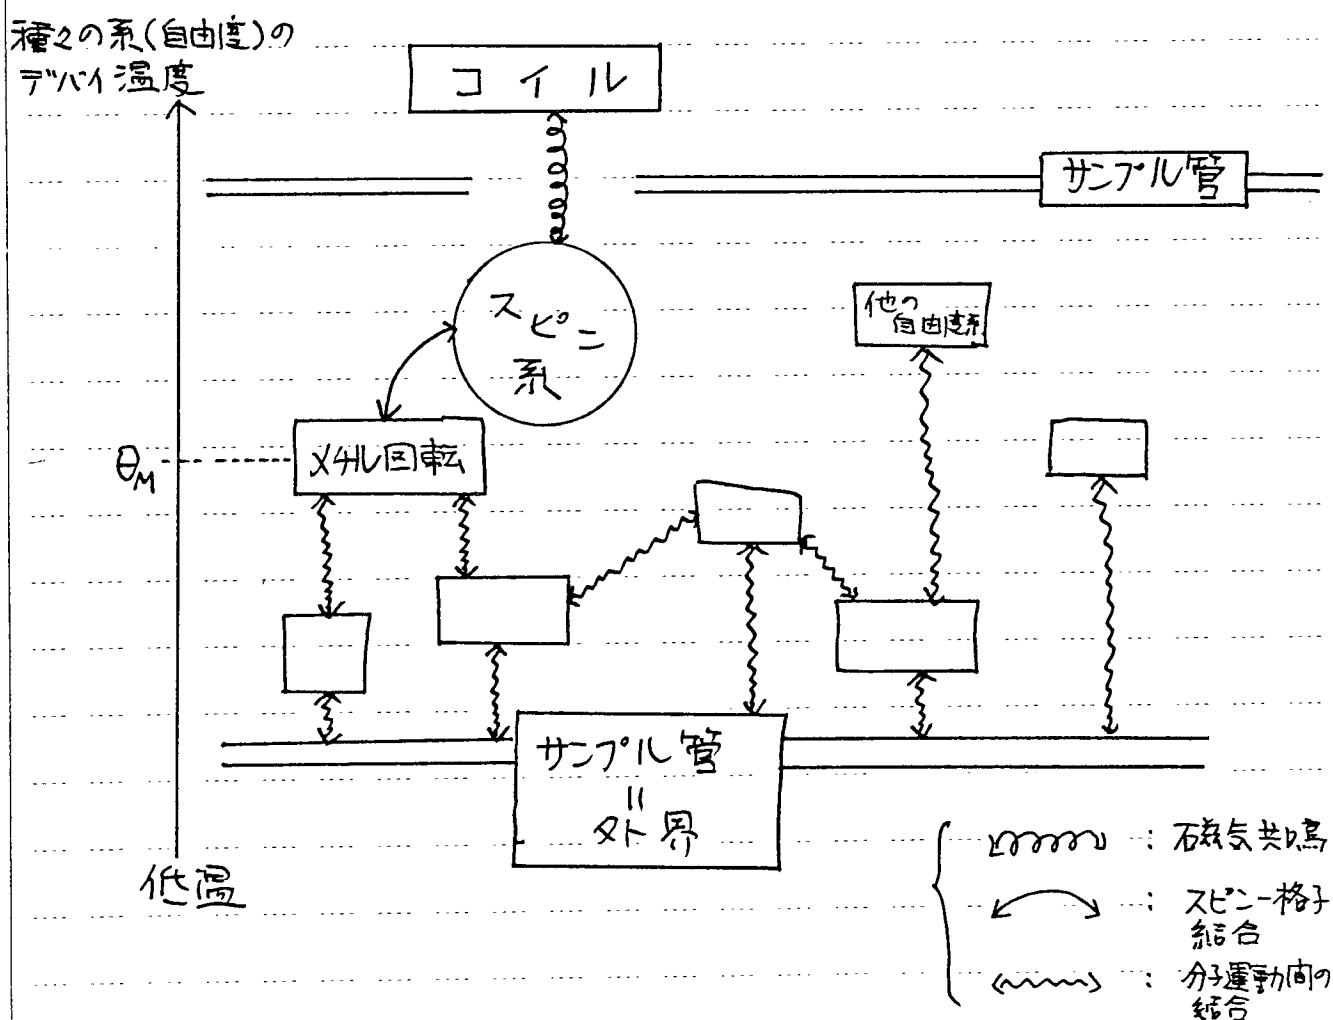 種々の系(自由度)の
デバイ温度
コイル
サンプル管
スピン
系
他の
自由度系
θM
メチル回転
サンプル管
=
外界
低温
: 磁気共鳴
: スピン-格子
結合
: 分子運動間の
結合